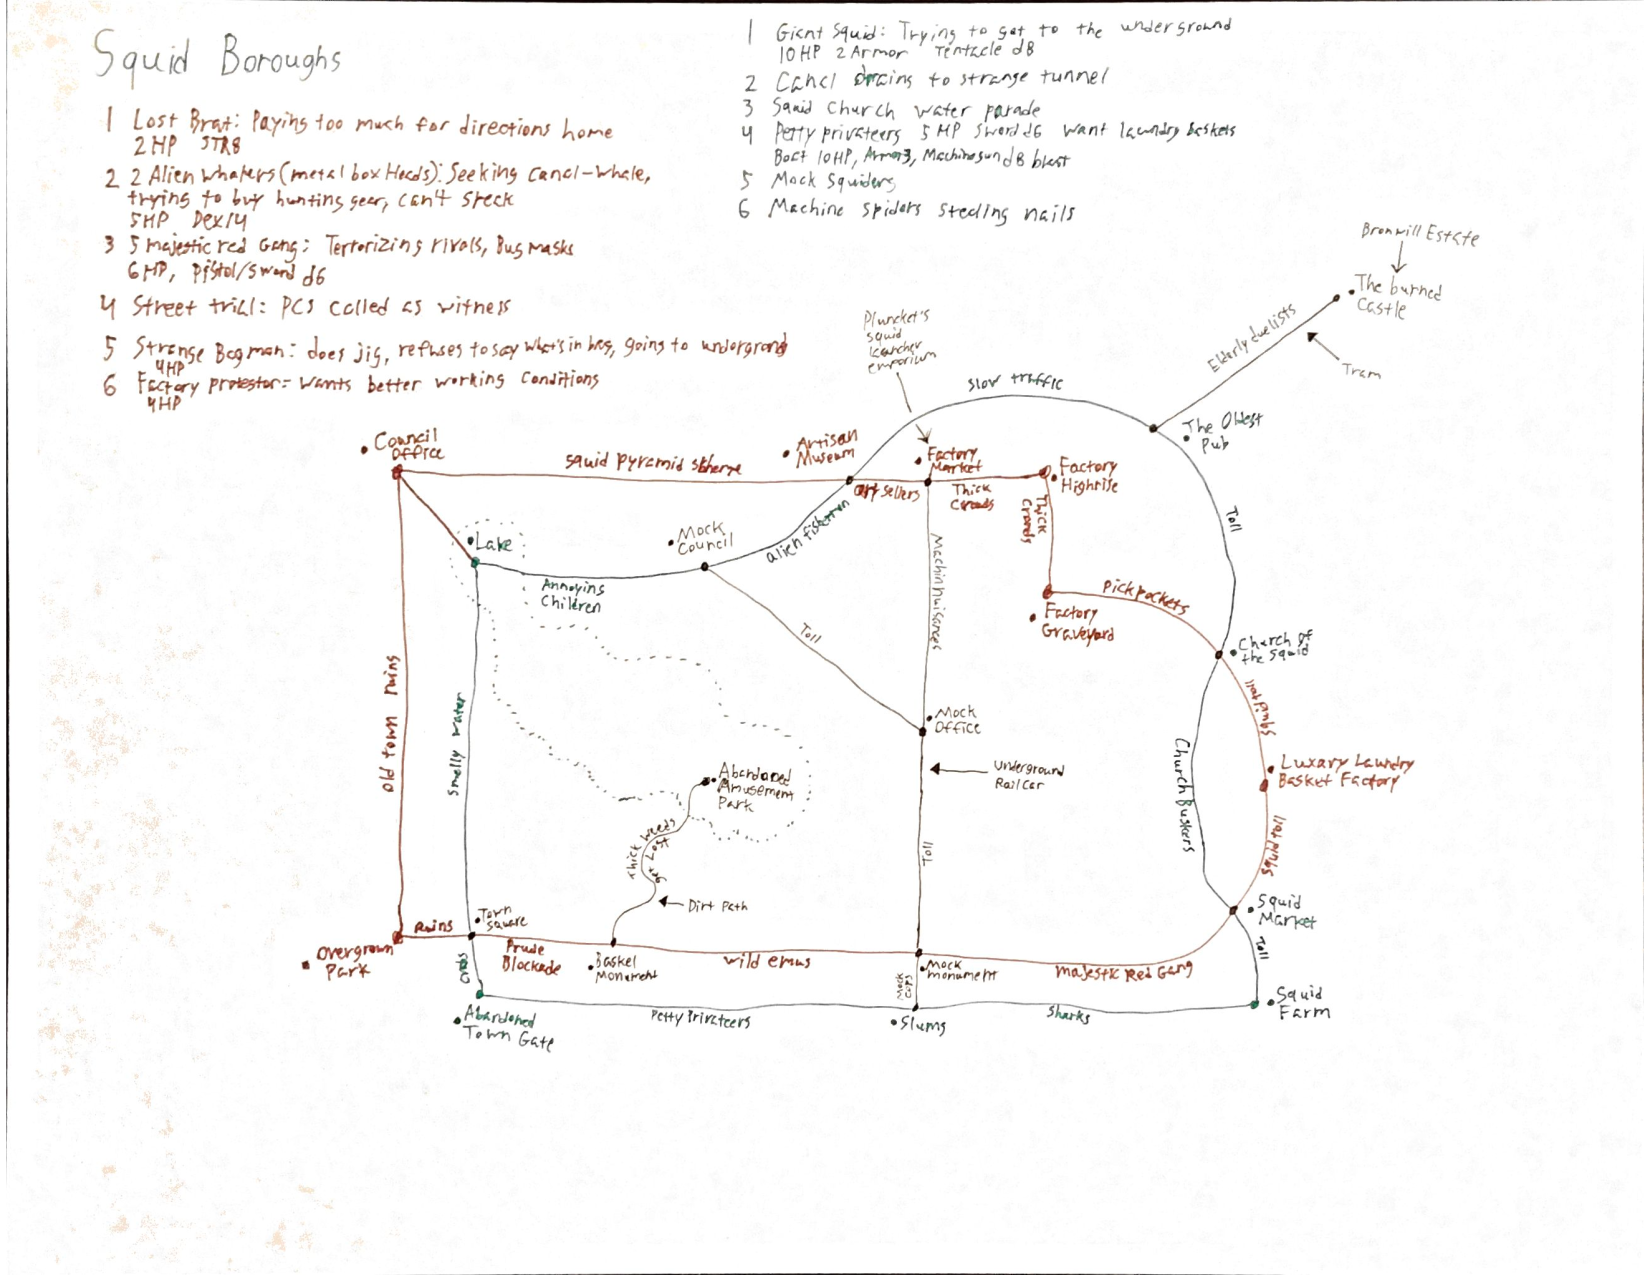 Squid Boroughs
1 Lost Brat: Paying too much for directions home
2HP STR8
2 2 Alien Whalers (metal box Heads): Seeking Canal-Whale,
trying to buy hunting gear, can't speak
5HP Dex14
3 5 majestic red Gang: Terrorizing rivals, Bug masks
6HP, Pistol/Sword d6
4 Street trial: PCs called as witness
5 Strange Bagman: does jig, refuses to say what's in bag, going to underground
4HP
6 Factory protestor: Wants better working conditions
4HP
1 Giant Squid: Trying to get to the underground
10HP 2 Armor Tentacle d8
2 Canal drains to strange tunnel
3 Squid Church water parade
4 Petty privateers 5HP Sword d6 want laundry baskets
Boat 10HP, Armor3, Machinegun d8 blast
5 Mock Squiders
6 Machine spiders stealing nails
Bronwill Estate
The burned
Castle
Elderly duelists
Tram
Pluncket's
squid
emporium
slow traffic
The Oldest
Pub
Council
Office
squid pyramid
Artisan
Museum
art sellers
Factory
Market
Thick
Crowds
Factory
Highrise
Thick
Crowds
Toll
Lake
Annoying
Children
Mock
Council
alien fishermen
Toll
Machin nuisances
Factory
Graveyard
Pickpockets
Church of
the squid
Old town ruins
Smelly water
Mock
Office
Underground
Railcar
Toll
Church Buskers
Luxary Laundry
Basket Factory
squid toll
Abandoned
Amusement
Park
Thick weeds
get Lost
Dirt Path
Squid
Market
Toll
Ruins
Town
Square
Overgrown
Park
Prude
Blockade
Basket
Monument
wild emus
Mock
monument
majestic Red Gang
Mock
cops
Abandoned
Town Gate
Petty Privateers
Slums
Sharks
Squid
Farm